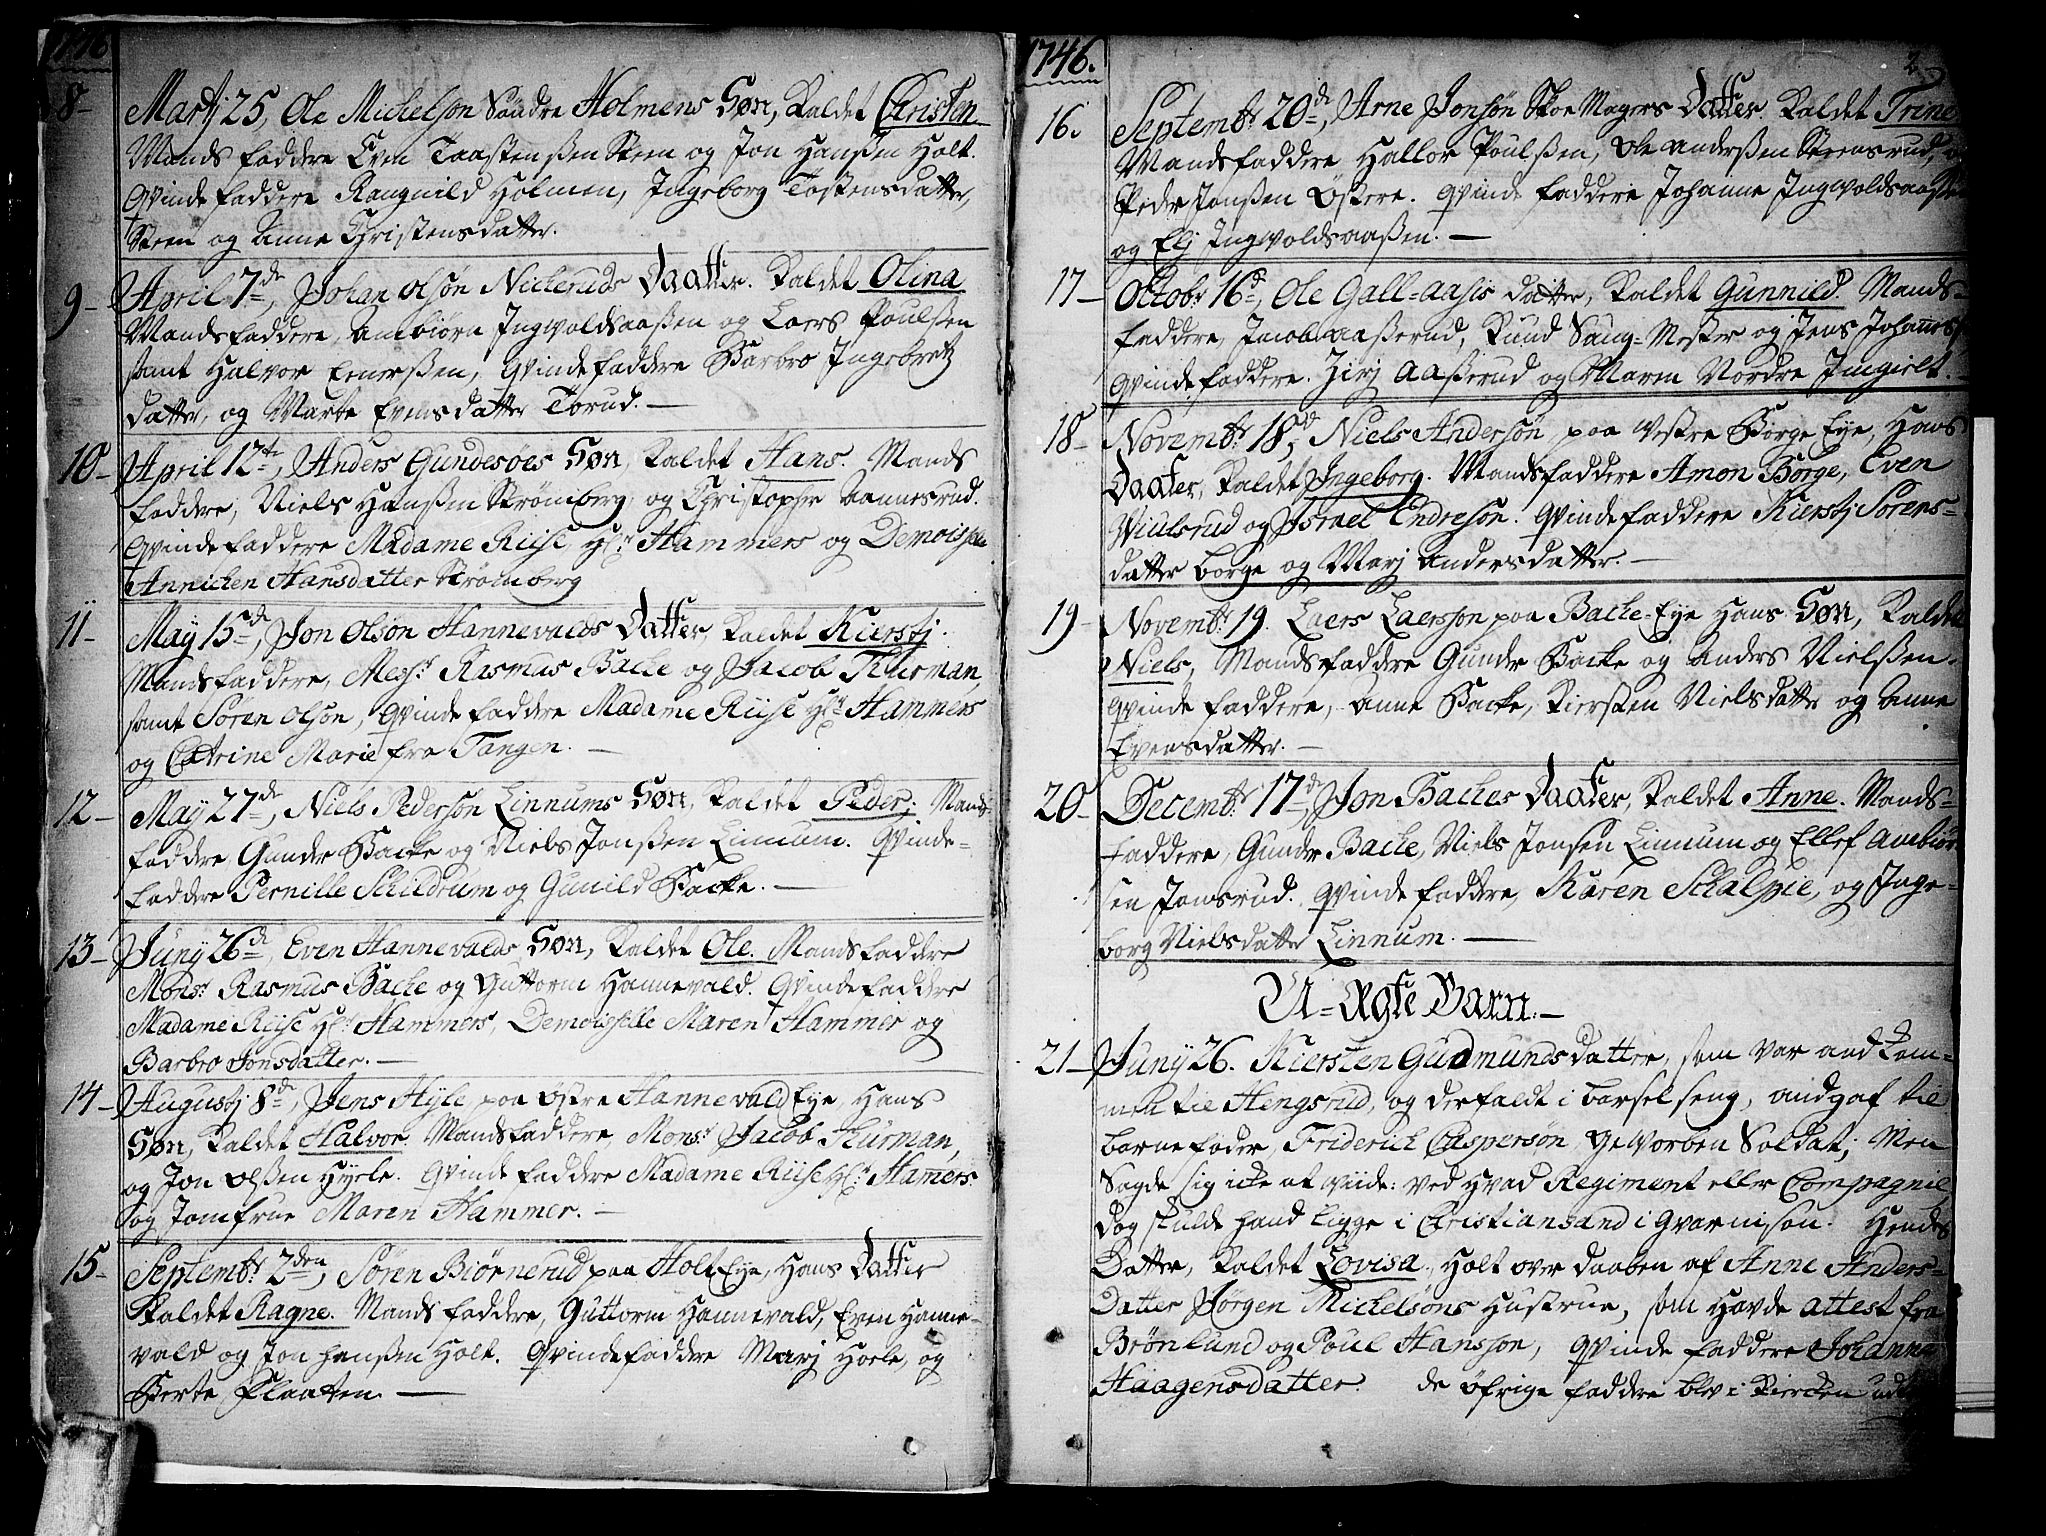 1746
8- Martj 25, Ole Michelson Söndre Holmens Søn, Kaldet Christen.
Mands faddere Even Taastensßen Skeen og Jon Hanßen Holt.
Qvinde faddere Rangnild Holmen, Ingeborg Tostensdatter,
Skeen og Anne Christensdatter.
9- April 7de, Johan Olsön Nickeruds Daatter. Kaldet Olina
Mandsfaddere, Ambiörn Ingvoldsaaßen og Laers Poulsßen
samt Halvor Eenerßen, Qvindefaddere Barbro Ingebretz
datter, og Marte Evensdatter Torud. —
10- April 12te, Anders Gundesøes Søn, Kaldet Hans. Mands
faddere, Niels Hanßen Strømberg, og Christopher Aannesrud.
Qvindefaddere Madame Riise, Hr. Hammers og Demoiselle
Annichen Hansdatter Strømberg
11- May 15de, Jon Olsön Hannevalds Datter, Kaldet Kierstj.
Mandsfaddere, Mosr. Rasmus Backe og Jacob Thurman,
samt Sören Olsön, Qvinde faddere Madame Riise Hr. Hammers
og Catrine Marie fra Tangen. —
12- May 27de, Niels Pedersön Linnums Søn, Kaldet Peder; Mands
faddere Gunder Backe og Niels Jonßen Linnum. Qvinde-
faddere Pernille Schildrum og Gunild Backe. —
13- Junij 26de, Even Hannevalds Søn, Kaldet Ole. Mandsfaddere
Monsr. Rasmus Backe og Guttorm Hannevald. Qvindefaddere
Madame Riise Hr. Hammers, Demoisselle Maren Hammer og
Barbro Jonsdatter. —
14- Augustj 8de, Jens Hÿle, paa Østre Hannevald Eye, Hans
Søn, Kaldet Halvor. Mandsfaddere Monsr. Jacob Thurman,
og Jon Olßen Hyele. Qvinde faddere Madame Riise Hr. Hamers
og Jomfrue Maren Hammer. —
15- Septembr. 2den, Sören Biörnerud paa Holt Eye, Hans Datter
Kaldet Ragne. Mands faddere, Guttorm Hannevald, Even Hanne-
vald og Jon Hanßen Holt. Qvindefaddere Marj Hoele, og
Berte Plaatten. —
1746. 2
16. Septembr. 20de, Arne Jonsön Skoe Magers Datter. Kaldet Trine.
Mandsfaddere Hallor Poulßen, Ole Anderßen Skeensrud, og
Peder Jonßen Østere. Qvinde faddere Johanne Ingvoldsaaßen
og Elj Ingvoldsaaßen. —
17- Octobr. 16de, Ole Gall-aasis datter, Kaldet Gunnild. Mands-
faddere, Jacob Aaßerud, Knud Saug-Mester og Jens Johannes
Qvinde faddere. Zirj Aaßerud og Maren Nordre Jmgielt.
18- Novembr. 18de, Niels Andersön paa Vestre Borge Eye, Hans
Daatter, Kaldet Ingeborg. Mandsfaddere Amon Borge, Even
Wiulsrud og Israel Endresön. Qvindefaddere Kierstj Sorens-
datter Borge og Marj Andersdatter. —
19- Novembr. 19. Laers Laersson paa Backe-Eye Hans Søn, Kaldet
Niels, Mandsfaddere Gunder Backe og Anders Nielßen.
Qvinde faddere, Anne Backe, Kiersten Nielsdatter og Anne
Evensdatter. —
20- Decembr. 17de, Jon Backes Daatter, Kaldet Anne. Mands-
faddere, Gunder Backe, Niels Jonsen Linnum og Ellef Ambiör
sen Jonsrud. Qvinde faddere, Karen Schalpie, og Inge-
borg Nielsdatter Linnum. —
U-Ægte Barn. —
21- Junij 26. Kiersten Gudmunds datter, som var and kom-
men til Hengsrud, og der faldt i barsel seng, andgaf til
barnefader, Friderich Caspersön geworben Soldat; Men
Sagde sig icke at viide: ved hvad Regiment eller Compagnie,
dog skulde hand ligge i Christiansand i Gvarnison. Hendes
Datter, Kaldet Lovisa, Holt over daaben af Anne Anders-
Datter Jörgen Michelsöns Hustrue, som Hafde attest fra
Brönlund og Poul Hansson, Qvinde faddere Johanne
Haagensdatter. de öfrige faddere blev i Kiercken